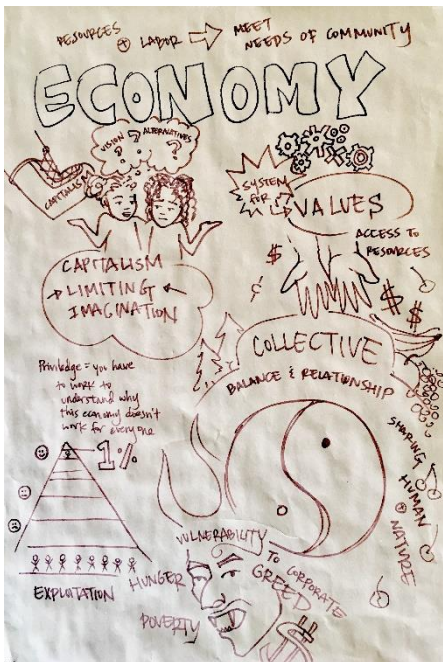 RESOURCES + LABOR → MEET
NEEDS OF COMMUNITY
ECONOMY
VISION ? ALTERNATIVES
? ?
CAPITALISM
SYSTEM
FOR
VALUES
ACCESS TO
RESOURCES
CAPITALISM
LIMITING
IMAGINATION
$
¢
$
$
COLLECTIVE
BALANCE & RELATIONSHIP
SHARING HUMAN + NATURE
Priviledge = you have
to work to
understand why
this economy doesn't
work for everyone
1%
EXPLOITATION
VULNERABILITY
TO CORPORATE
GREED
HUNGER
POVERTY
$